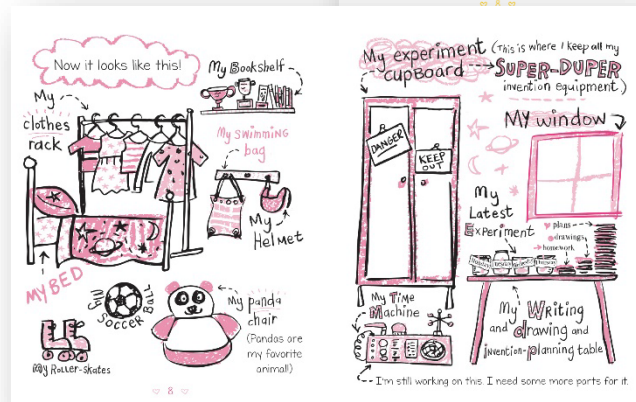 Now it looks like this!
My
clothes
rack
My Bookshelf
My swimming
bag
My
Helmet
MY BED
My Soccer Ball
My panda
chair
(Pandas are
my favorite
animal!)
My Roller-skates
8
My experiment
cupboard
(This is where I keep all my
SUPER-DUPER
invention equipment.)
DANGER
KEEP
OUT
My window
My
Latest
Experiment
plans
drawings
homework
My Time
Machine
My Writing
and drawing and
invention-planning table
I'm still working on this. I need some more parts for it.